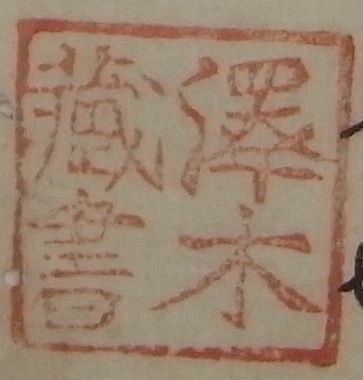 澤木
藏書